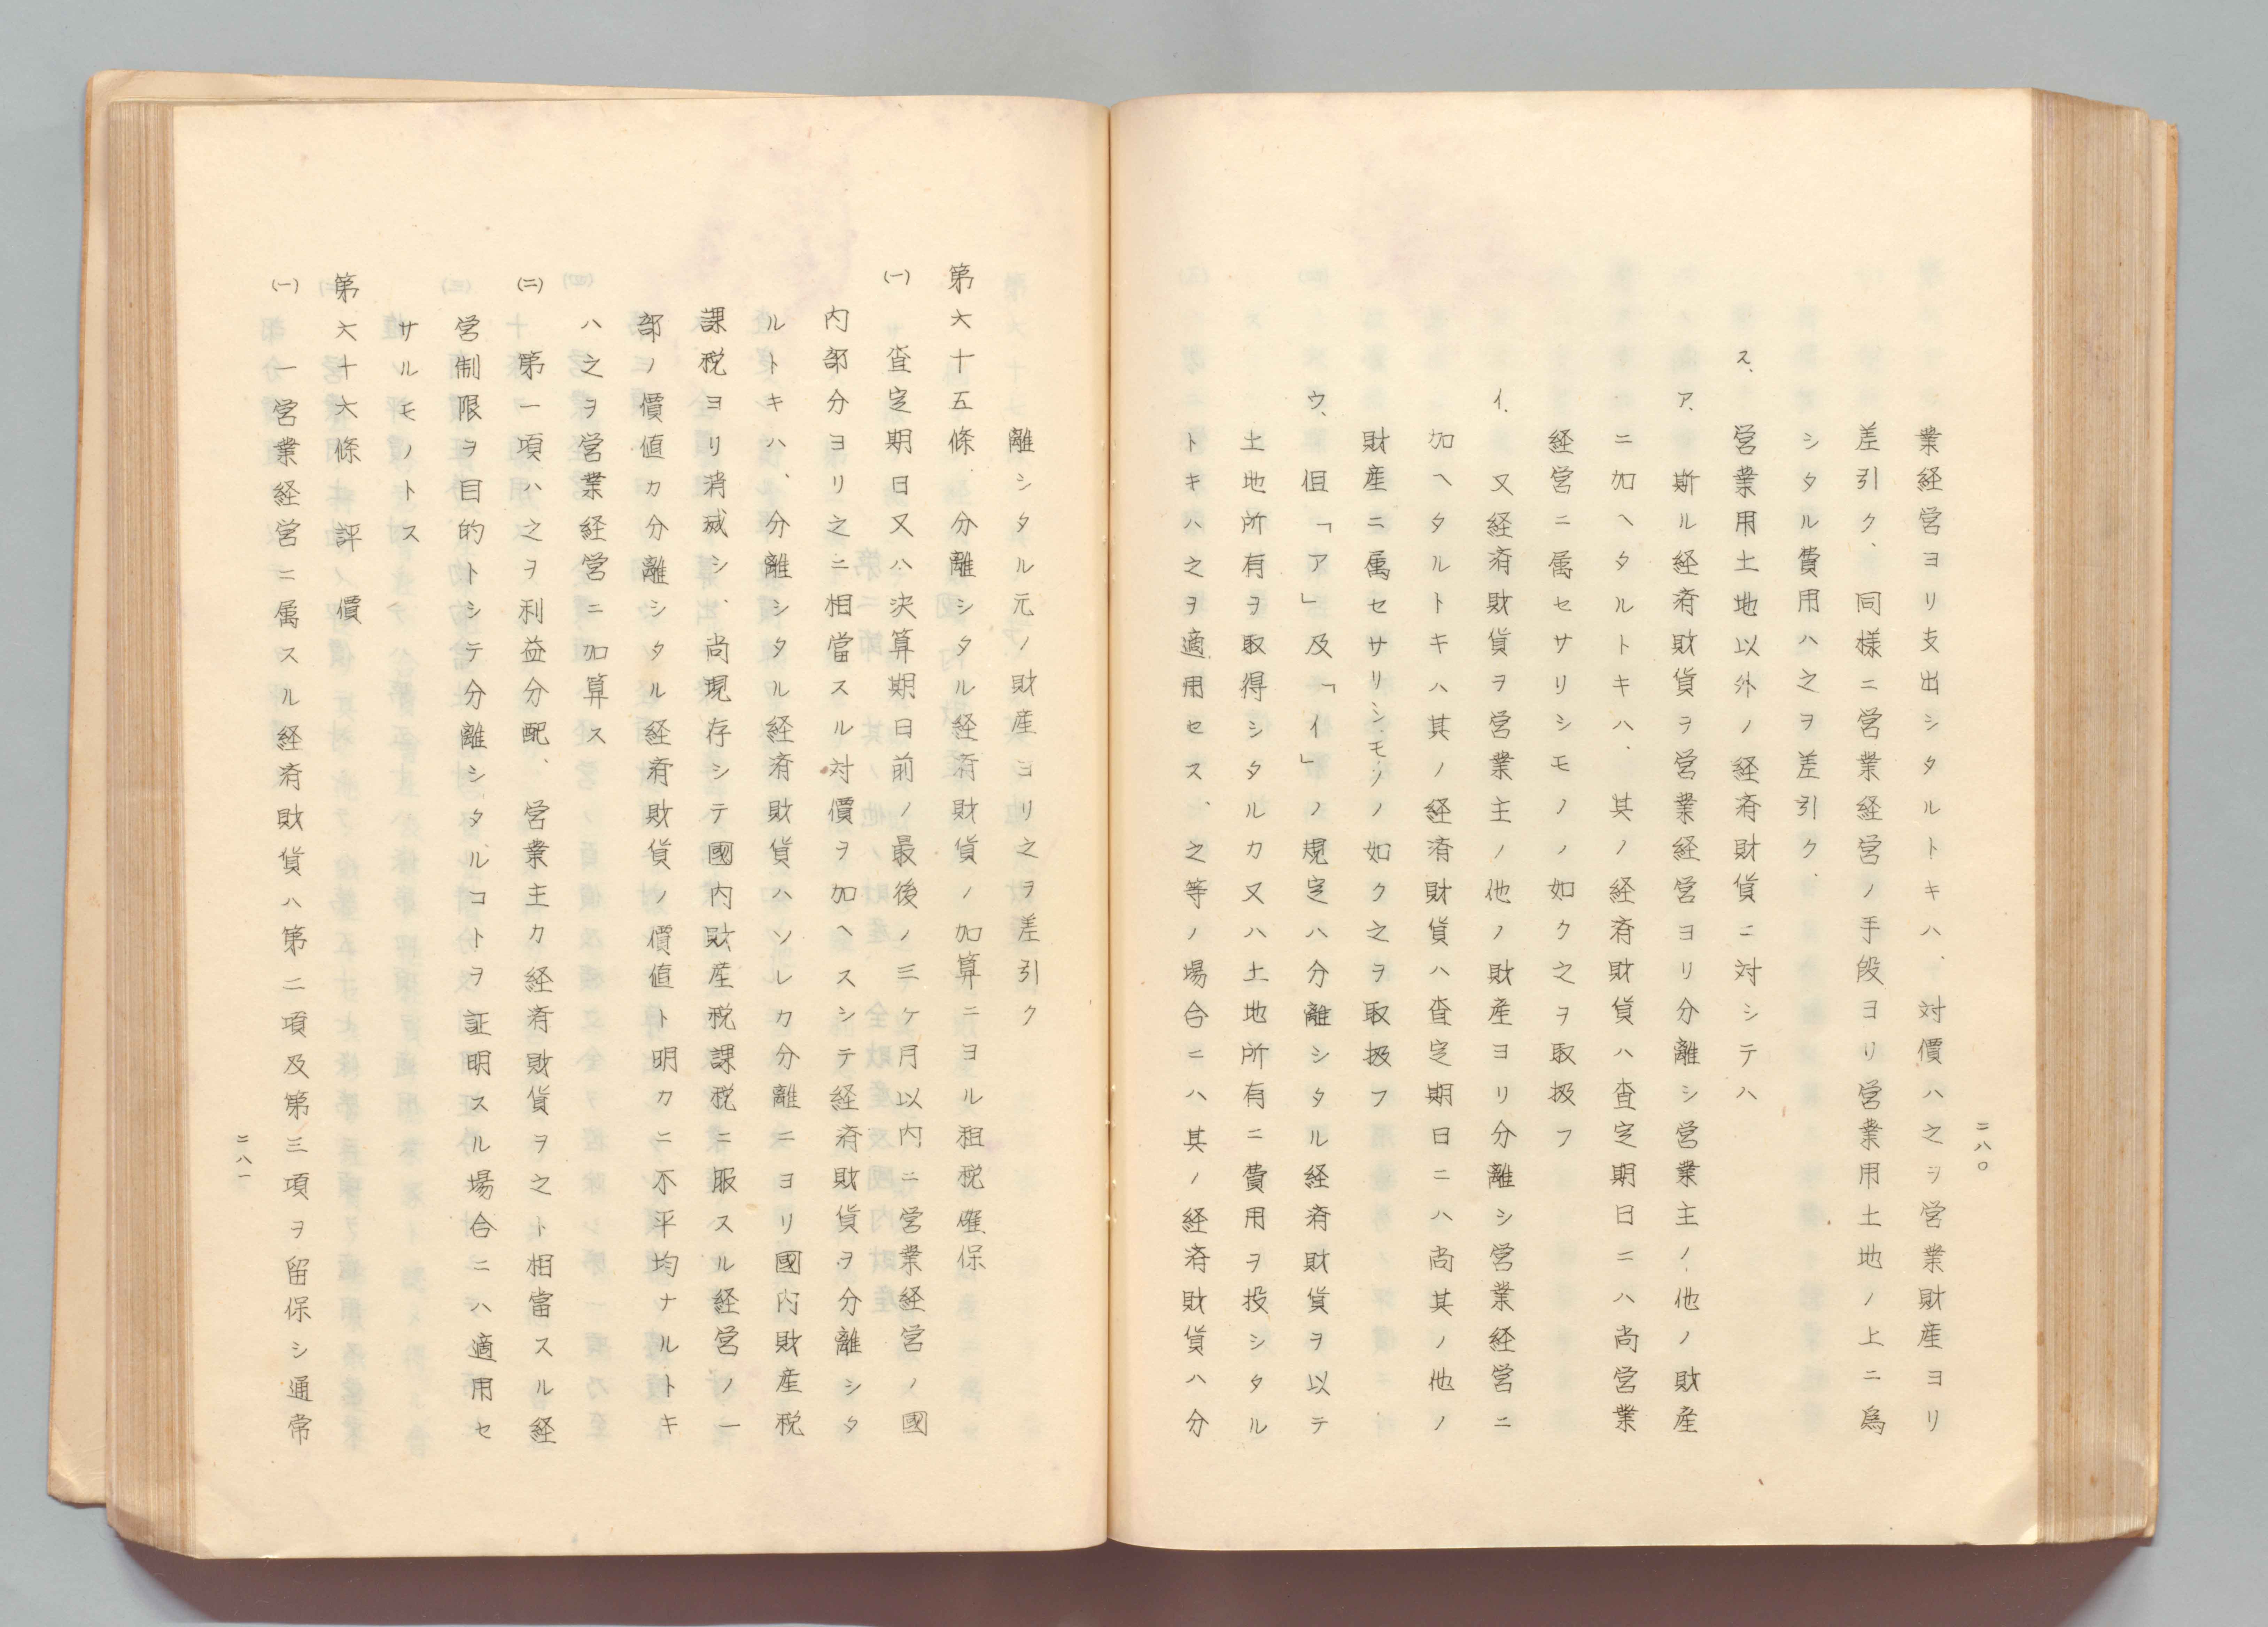 二八〇
業経営ヨリ支出シタルトキハ、対價ハ之ヲ営業財産ヨリ
差引ク、同様ニ営業経営ノ手段ヨリ営業用土地ノ上ニ爲
シタル費用ハ之ヲ差引ク、
ス、営業用土地以外ノ経済財貨ニ対シテハ
ア、斯ル経済財貨ヲ営業経営ヨリ分離シ営業主ノ他ノ財産
ニ加ヘタルトキハ、其ノ経済財貨ハ査定期日ニハ尚営業
経営ニ属セサリシモノノ如ク之ヲ取扱フ
イ、又経済財貨ヲ営業主ノ他ノ財産ヨリ分離シ営業経営ニ
加ヘタルトキハ其ノ経済財貨ハ査定期日ニハ尚其ノ他ノ
財産ニ属セサリシモノノ如ク之ヲ取扱フ
ウ、但「ア」及「イ」ノ規定ハ分離シタル経済財貨ヲ以テ
土地所有ヲ取得シタルカ又ハ土地所有ニ費用ヲ投シタル
トキハ之ヲ適用セス、之等ノ場合ニハ其ノ経済財貨ハ分
離シタル元ノ財産ヨリ之ヲ差引ク
第六十五條 分離シタル経済財貨ノ加算ニヨル租税確保
(一) 査定期日又ハ決算期日前ノ最後ノ三ケ月以内ニ営業経営ノ國
内部分ヨリ之ニ相當スル対價ヲ加ヘスシテ経済財貨ヲ分離シタ
ルトキハ、分離シタル経済財貨ハソレカ分離ニヨリ國内財産税
課税ヨリ消滅シ、尚現存シテ國内財産税課税ニ服スル経営ノ一
部ノ價値カ分離シタル経済財貨ノ價値ト明カニ不平均ナルトキ
ハ之ヲ営業経営ニ加算ス
(二) 第一項ハ之ヲ利益分配、営業主カ経済財貨ヲ之ト相當スル経
営制限ヲ目的トシテ分離シタルコトヲ証明スル場合ニハ適用セ
サルモノトス
第六十六條 評價
(一) 一営業経営ニ属スル経済財貨ハ第二項及第三項ヲ留保シ通常
二八一